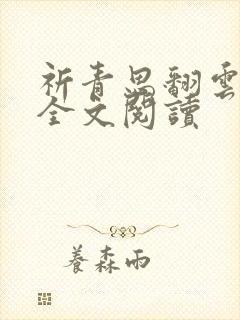 祈青思翻雲
全文閱讀
養森雨